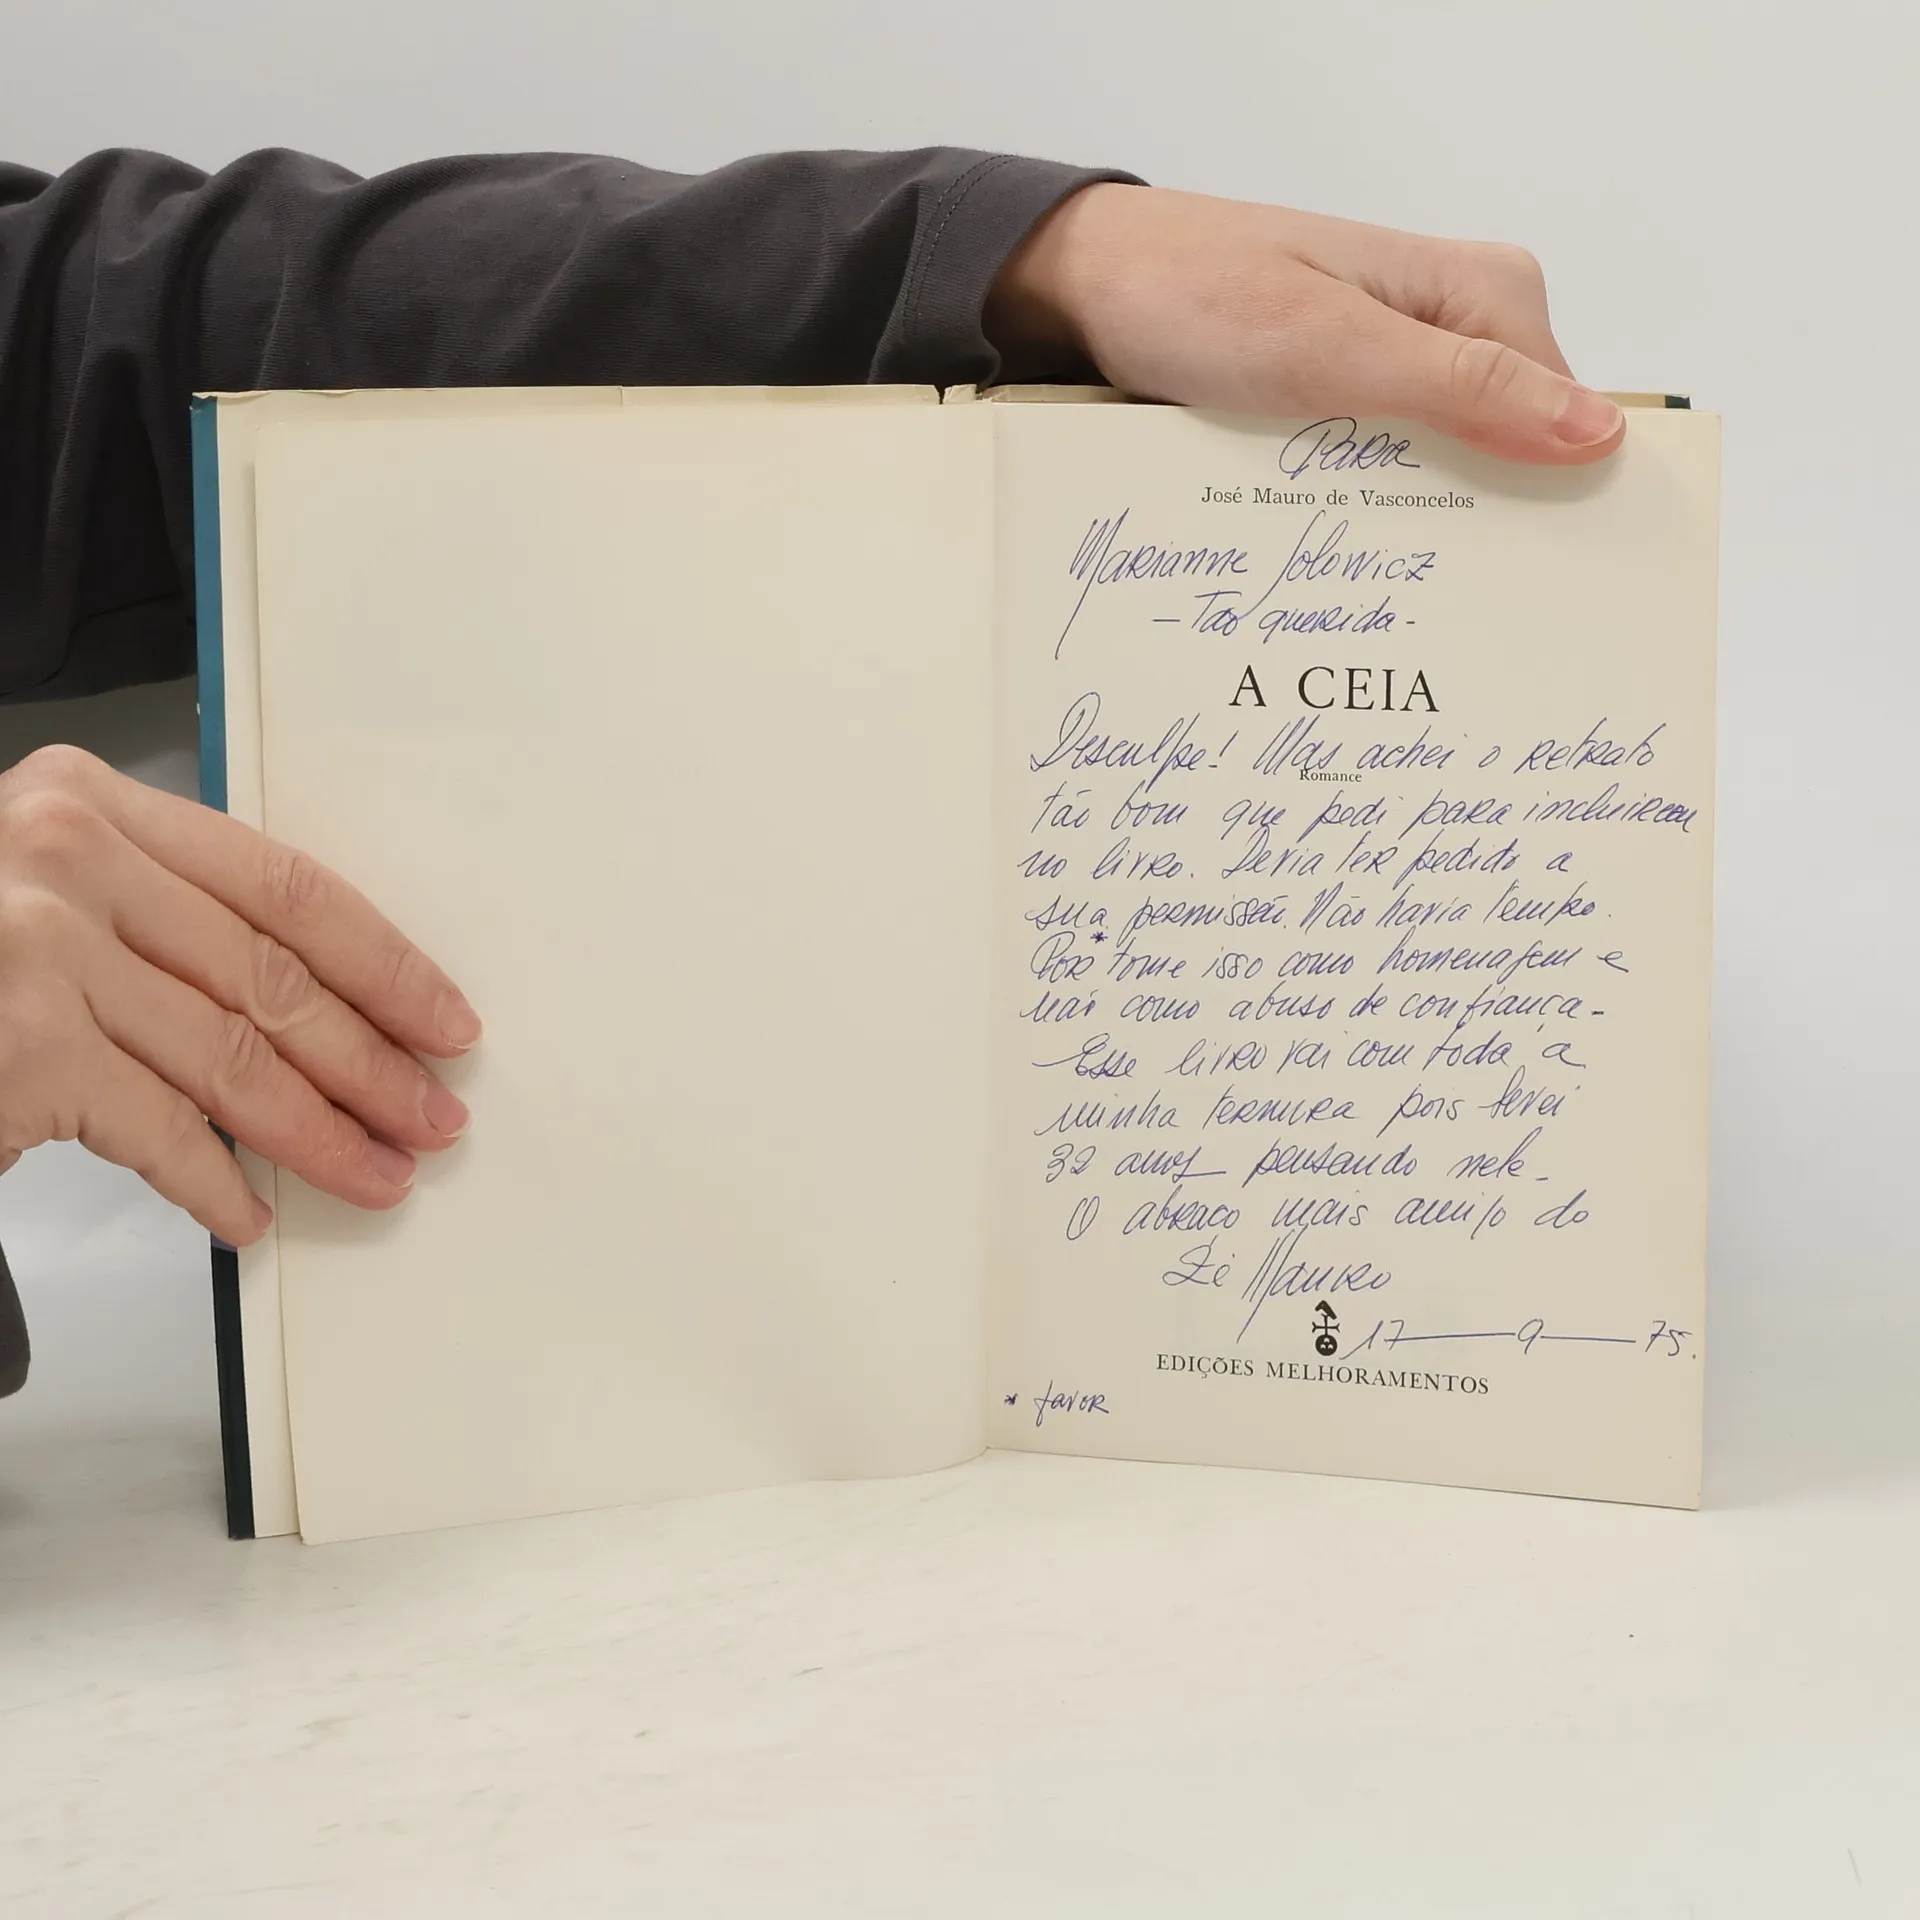 Para
José Mauro de Vasconcelos
Marianne Jolowicz
- Tão querida -
A CEIA
Desculpe! Mas achei o retrato
Romance
tão bom que pedi para incluirem
no livro. Devia ter pedido a
sua permissão. Não havia tempo.
Por * tome isso como homenagem e
não como abuso de confiança -
Esse livro vai com toda a
minha ternura pois levei
32 anos pensando nele -
O abraço mais amigo do
Zé Mauro
17 — 9 — 75.
EDIÇÕES MELHORAMENTOS
* favor